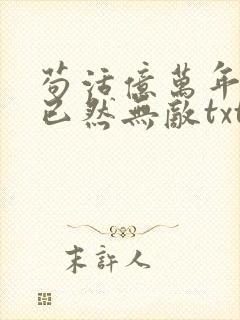 苟活億萬年
已然無敵txt
末許人